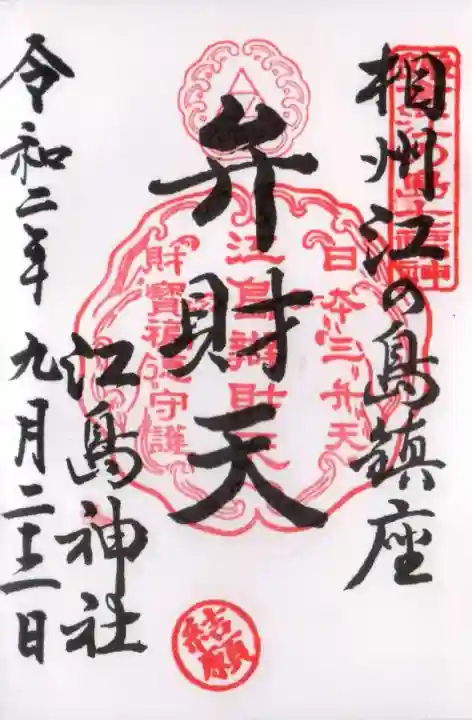 相州江の島鎮座
弁財天
江島神社
令和二年九月二十二日
日本三弁天
江島辨財天
財寶福徳守護
結願